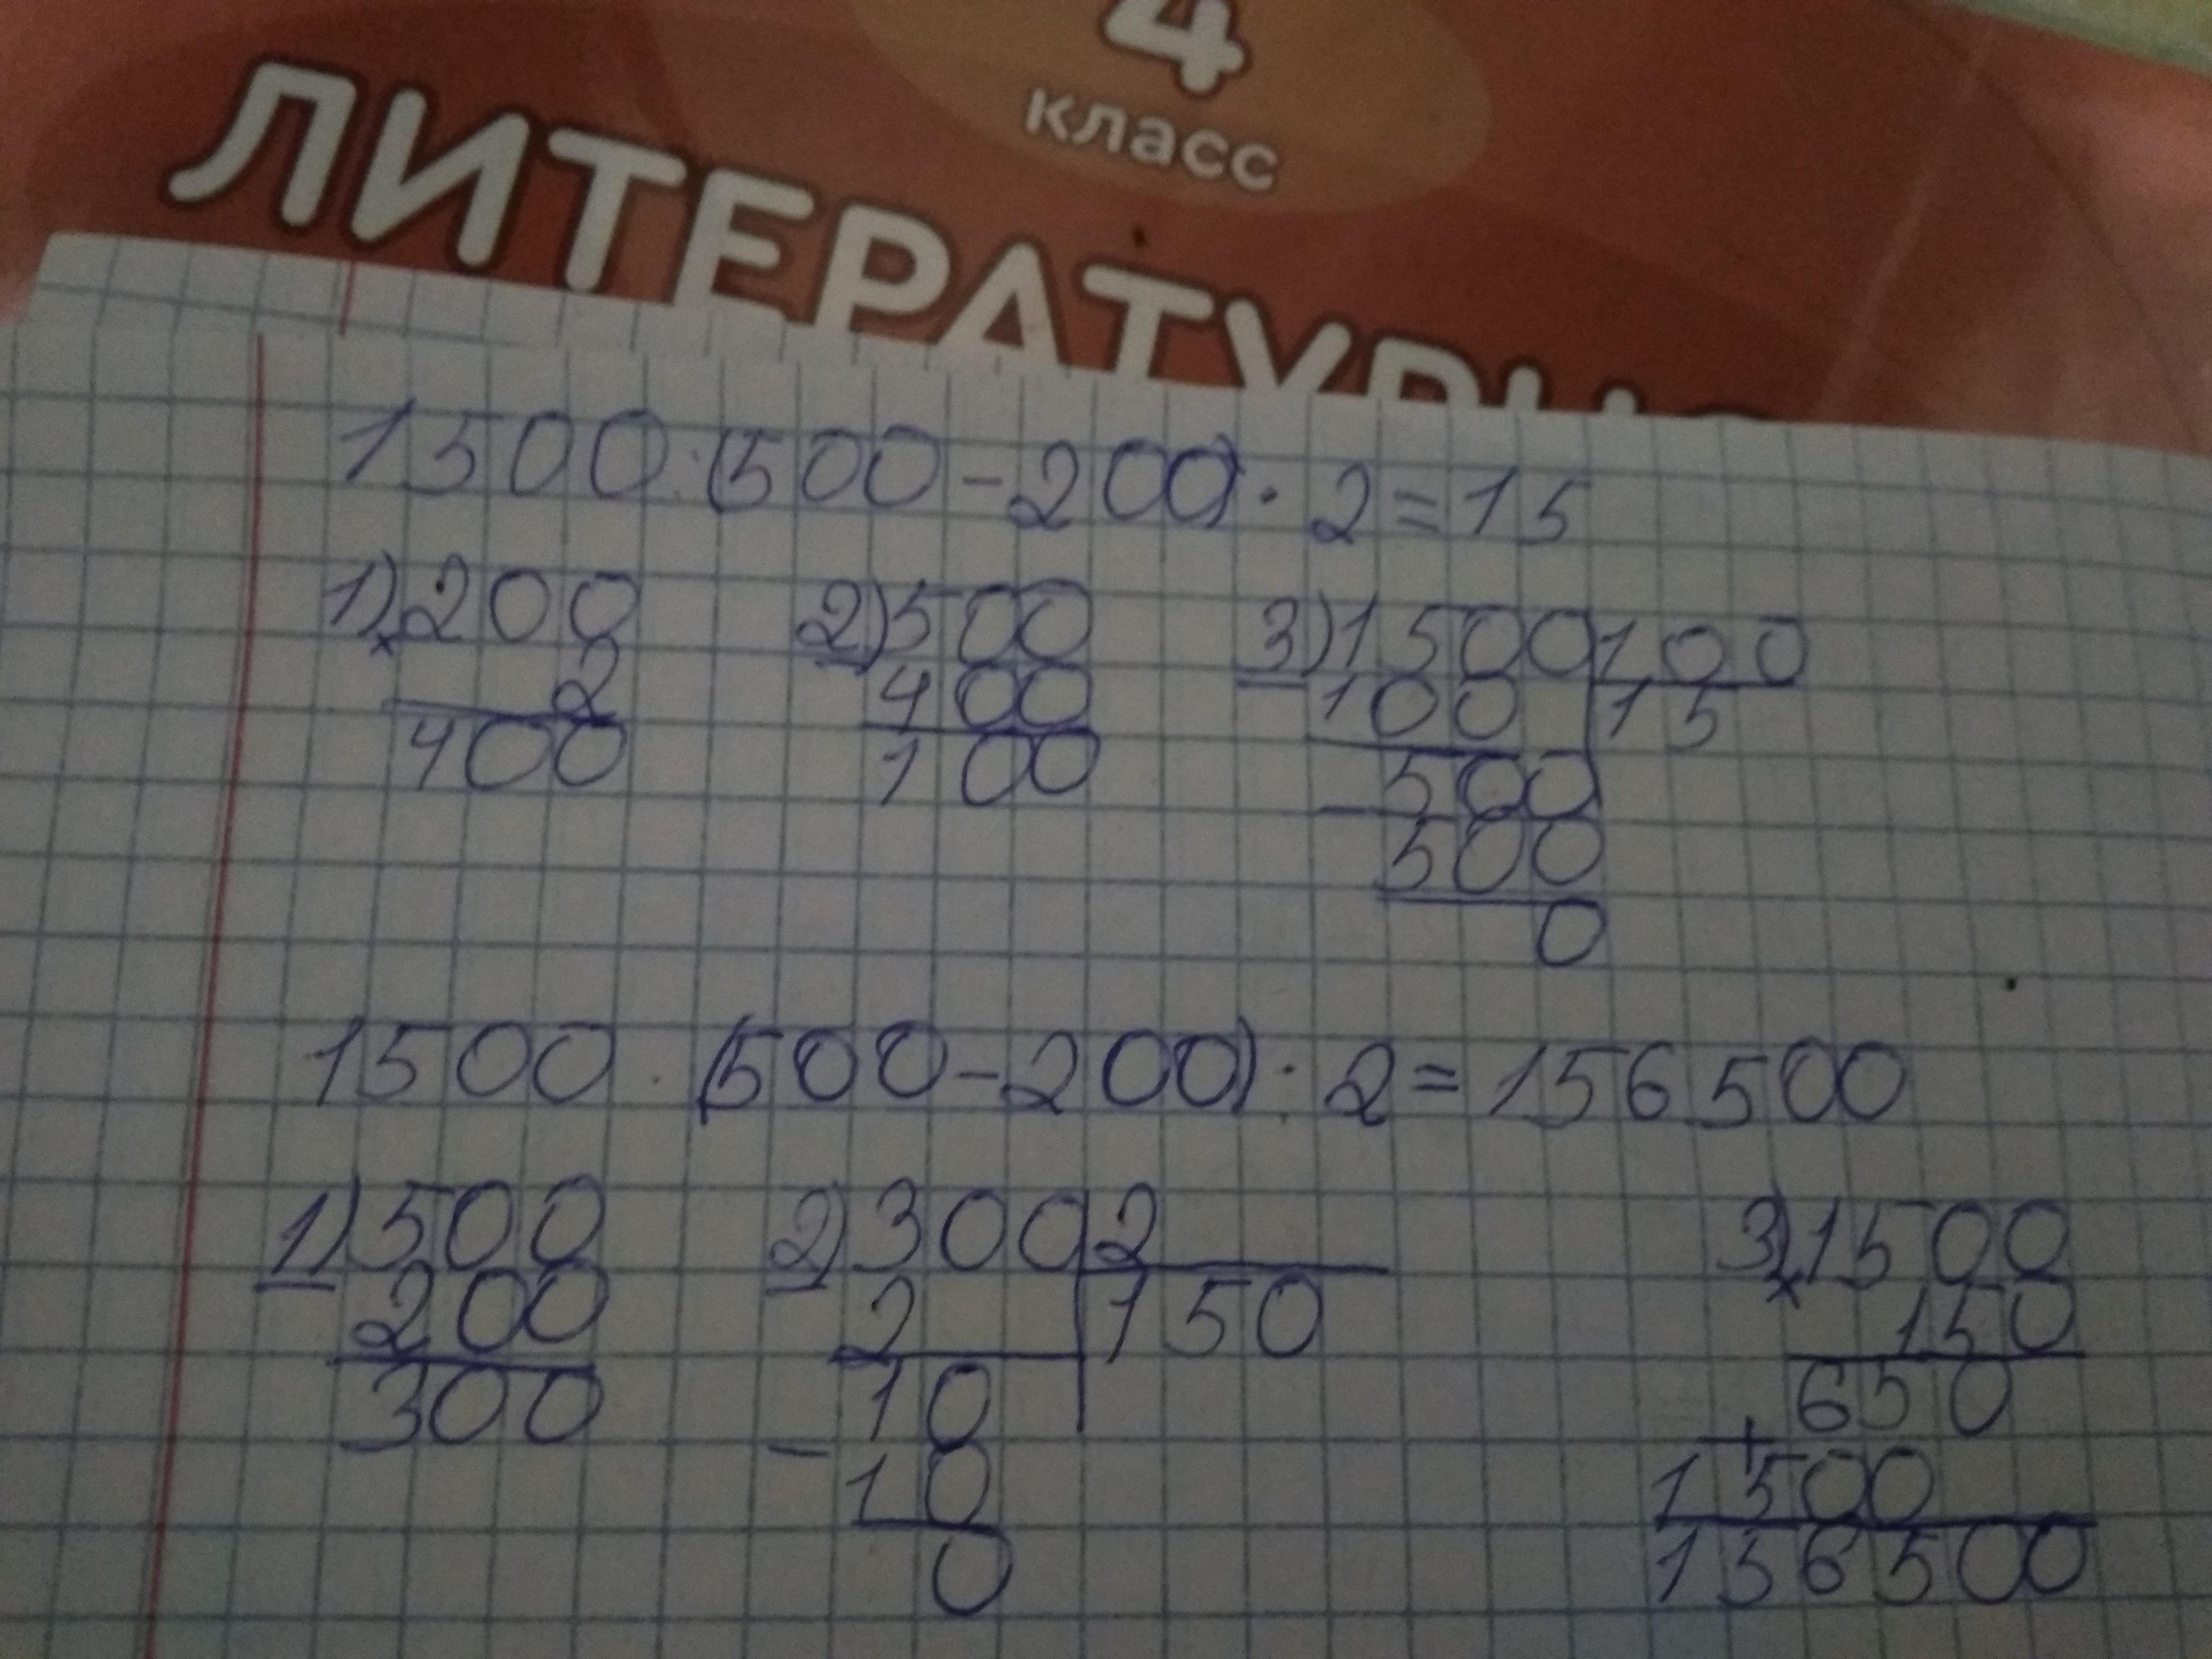 4
класс
ЛИТЕРАТУРН
1500:(500-200)·2=15
1) 200 2) 500 3) 1500 100
× 2 - 400 - 100 15
400 100 - 500
500
0
1500 · (500-200) · 2=156500
1) 500 2) 300 2 3) 1500
- 200 - 2 150 × 150
300 10 650
- 10 + 1500
0 156500